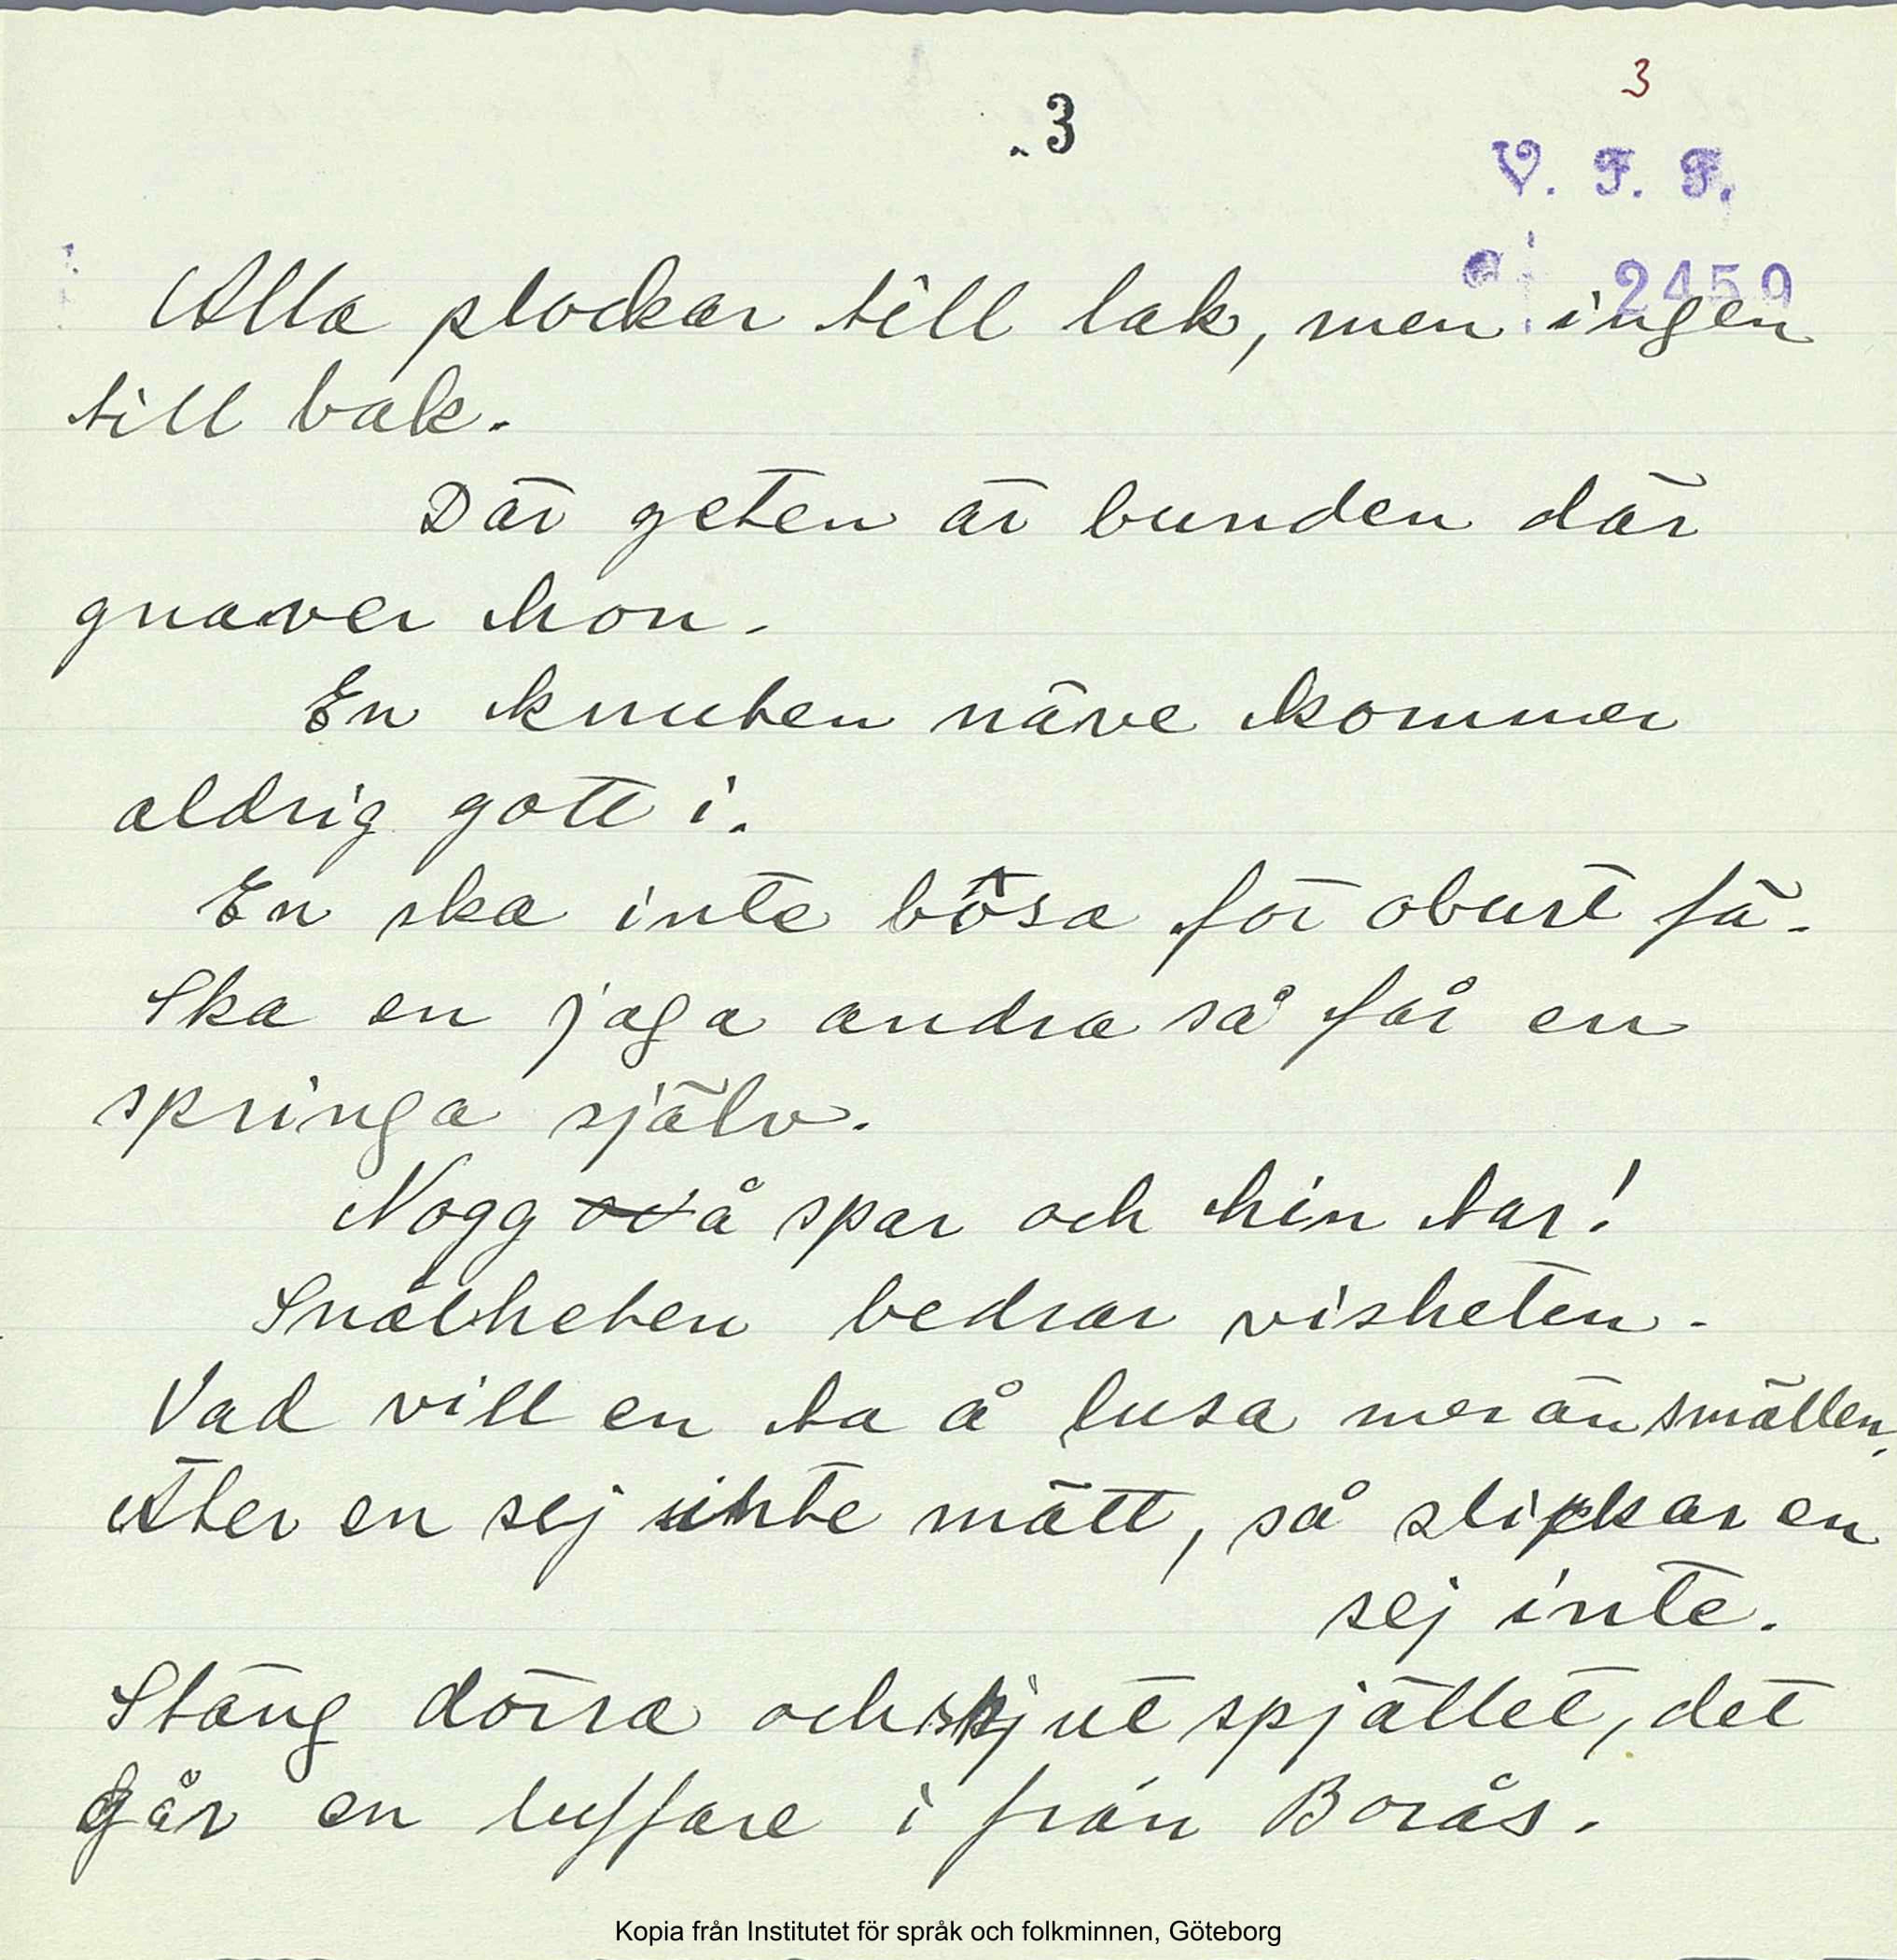 3
3
V. F. F.
2459
Alla plockar till lak, men ingen
till bak.
Där geten är bunden där
gnaver hon.
En knuten näve kommer
aldrig gott i.
En ska inte bösa för oburt fä.
Ska en jaga andra så får en
springa själv.
Nogg å spar och hin tar!
Snålheten bedrar visheten.
Vad vill en ta å lusa mer än smällen,
Äter en sej inte mätt, så slickar en
sej inte.
Stäng dörra och skjut spjället, det
går en luffare i från Borås.
Kopia från Institutet för språk och folkminnen, Göteborg